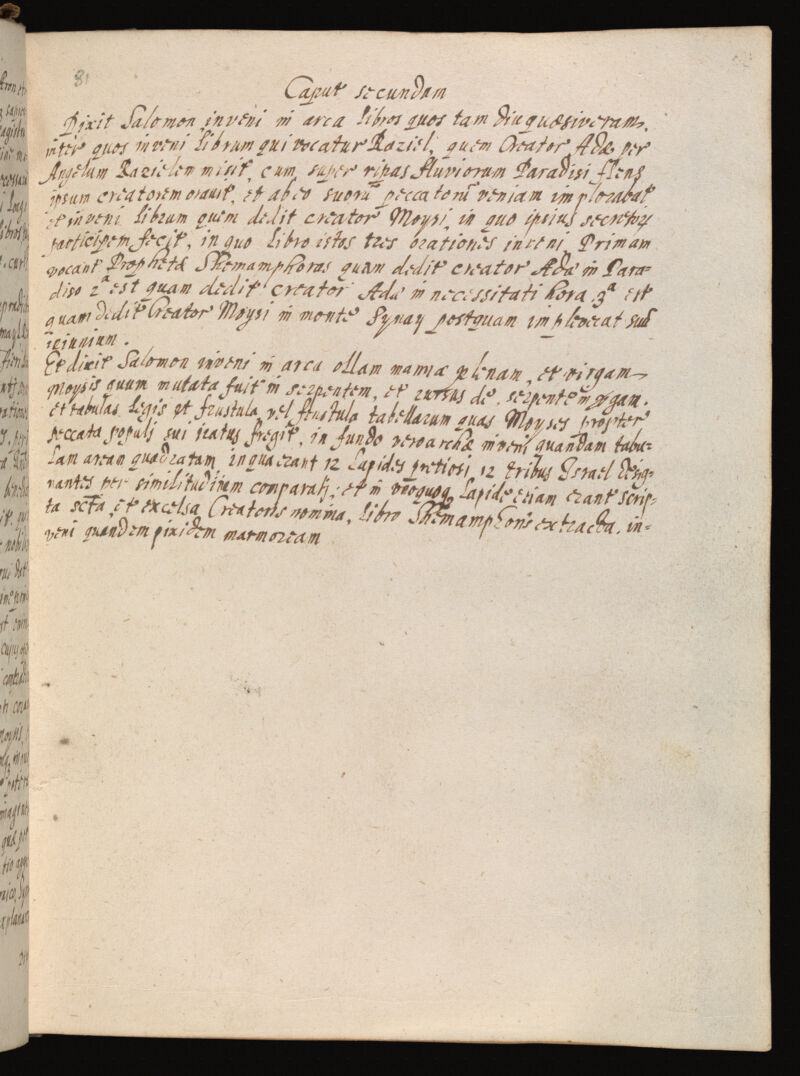 81
Caput secundum
Dixit Salomon inveni in arca libros quos tam diu quæsiveram,
inter quos inveni librum qui vocatur Raziel, quem Creator Adæ per
Angelum Razielem misit, cum super ripas fluviorum Paradisi flens
ipsum creatorem oravit, et ab eo suorũ peccatorũ veniam implorabat
et inveni librum quem dedit creator Moysi, in quo ipsius secretorũ
participem fecit, in quo libro istos tres orationes inveni, Primam
vocant Prophetæ Shemamphoras quam dedit creator Adæ in Para-
diso 2ª est quam dedit creator Adæ in necessitati hora 3ª est
quam dedit Creator Moysi in monte Synay postquam impleverat suũ
ieiunium.
Et dixit Salomon inveni in arca ollam mannæ plenam, et virgam
Moysis quum mutata fuit in serpentem, et rursus de serpente in virgam.
et tabulas legis et frustula vel frustula tabellarum quas Moyses propter
peccata populi sui iratus fregit, in fundo vero archæ inveni quandam tabu-
lam aream quadratam in qua erant 12 lapides pretiosi 12 tribus Israel desig-
nantes per similitudinem comparati, et in unoquoq lapide etiam erant scrip-
ta sctã et excelsa Creatoris nomina, libro Shemamphoris extracta, in-
veni quandem pixidem marmoream